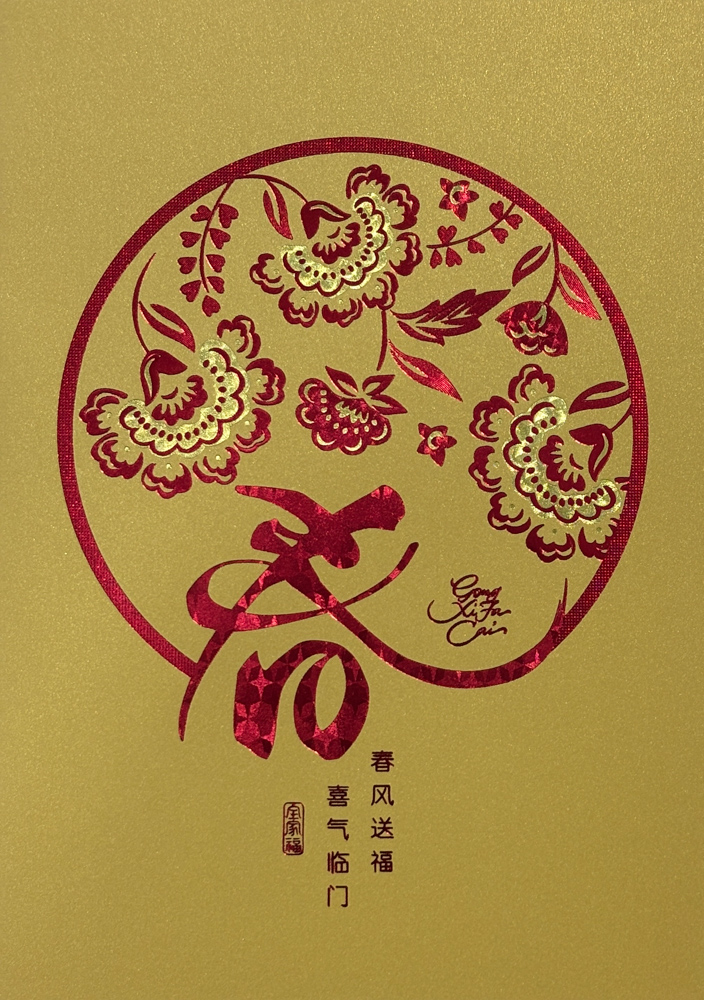 春
Gong
Xi Fa
Cai
春风送福
喜气临门
全家福